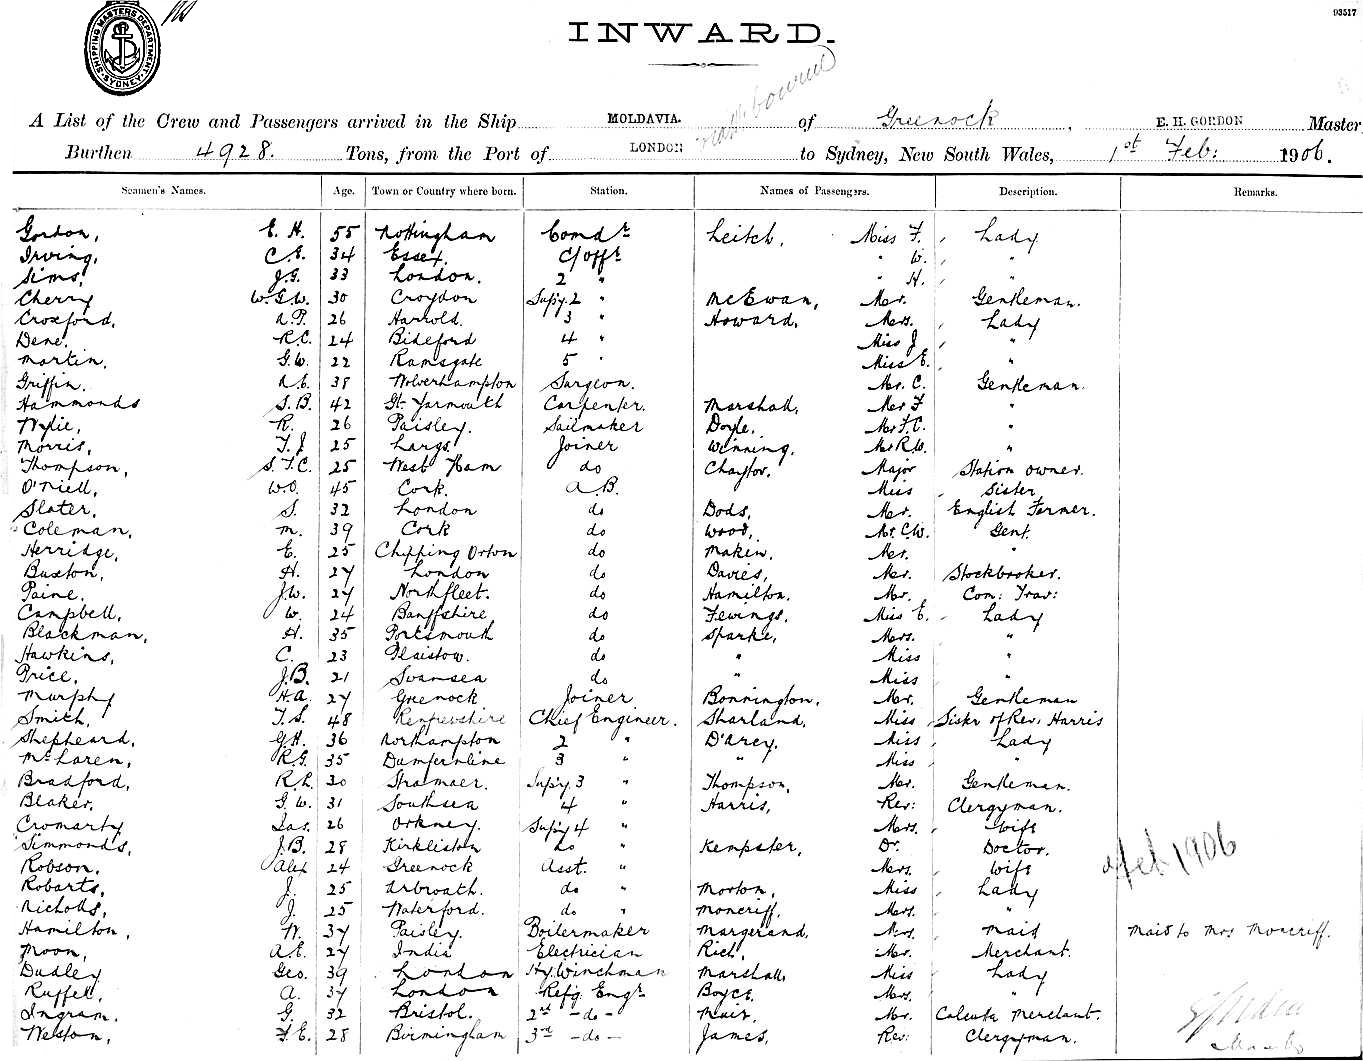 93517
SHIPPING MASTERS DEPARTMENT SYDNEY
INWARD.
A List of the Crew and Passengers arrived in the Ship MOLDAVIA. of Greenock, E. H. GORDON Master
Burthen 4928. Tons, from the Port of LONDON via Melbourne to Sydney, New South Wales, 1st Feb: 1906.
Seamen's Names. Age. Town or Country where born. Station. Names of Passengers. Description. Remarks.
Gordon, E. H. 55 Nottingham Comdr Leitch, Miss F. Lady
Irving, C. E. 34 Essex. C/offr " W. "
Sims, J.G. 33 London. 2 " " H. "
Cherry W.G.W. 30 Croydon Supy. 2 " McEwan, Mr. Gentleman.
Croxford, A.P. 26 Harrold. 3 " Howard, Mrs. Lady
Dene, R.C. 24 Bideford 4 " Miss J. "
Martin, G.W. 22 Ramsgate 5 " Miss E. "
Griffin. A.E. 38 Wolverhampton Surgeon. Mr. C. Gentleman.
Hammonds S.B. 42 Gt. Yarmouth Carpenter. Marshall, Mr F "
Wylie, R. 26 Paisley. Sailmaker Doyle, Mr F.C. "
Morris, T.J 25 Largs. Joiner Winning, Mr R.W. "
Thompson, S.T.C. 25 West Ham do Chaytor. Major Station owner.
O'Niell, W.O. 45 Cork. A.B. Miss Sister
Slater, S. 32 London do Dods, Mr. English Farmer.
Coleman, M. 39 Cork do Wood, Mr. C.W. Gent.
Herridge, E. 25 Chipping Orton do Maken, Mr. "
Buxton, H. 27 London do Davies, Mr. Stockbroker.
Paine, J.W. 27 Northfleet. do Hamilton, Mr. Com: Trav:
Campbell, W. 24 Banffshire do Fewings, Miss E. Lady
Blackman, H. 35 Portsmouth do Sparke, Mrs. "
Hawkins, C. 23 Plaistow. do " Miss "
Price, J.B. 21 Swansea do " Miss "
Murphy H.A. 27 Greenock Joiner Bonnington, Mr. Gentleman
Smith, T.S. 48 Renfrewshire Chief Engineer. Sharland, Miss Sister of Rev. Harris
Shepheard, G.H. 36 Northampton 2 " D'Arcy, Miss Lady
McLaren, R.G. 35 Dumfernline 3 " " Miss "
Bradford, R.L. 30 Stranraer. Supy 3 " Thompson, Mr. Gentleman.
Blaker, G.W. 31 Southsea 4 " Harris, Rev: Clergyman.
Cromarty Jas. 26 Orkney. Supy 4 " Mrs. Wife
Simmonds, J.B. 28 Kirkliston do " Kempster, Dr. Doctor.
Robson, Alex 24 Greenock Asst. " Mrs. Wife
Robarts, J. 25 Arbroath. do " Morton, Miss Lady
Nicholls, J. 25 Waterford. do " Moncriff, Mrs. "
Hamilton, W. 37 Paisley. Boilermaker Margerand, Mrs. Maid Maid to Mrs Moncriff.
Moon, A.E. 27 India Electrician Rich, Mr. Merchant.
Dudley Geo. 39 London Hy. Winchman Marshall, Miss Lady
Ruffel, A. 37 London Refg Engr Boyce, Mrs. "
Ingram. G. 32 Bristol. 2nd -do- Muir, Mr. Calcutta Merchant.
Weston, F.E. 28 Birmingham 3rd -do- James, Rev: Clergyman.
Feb 1906